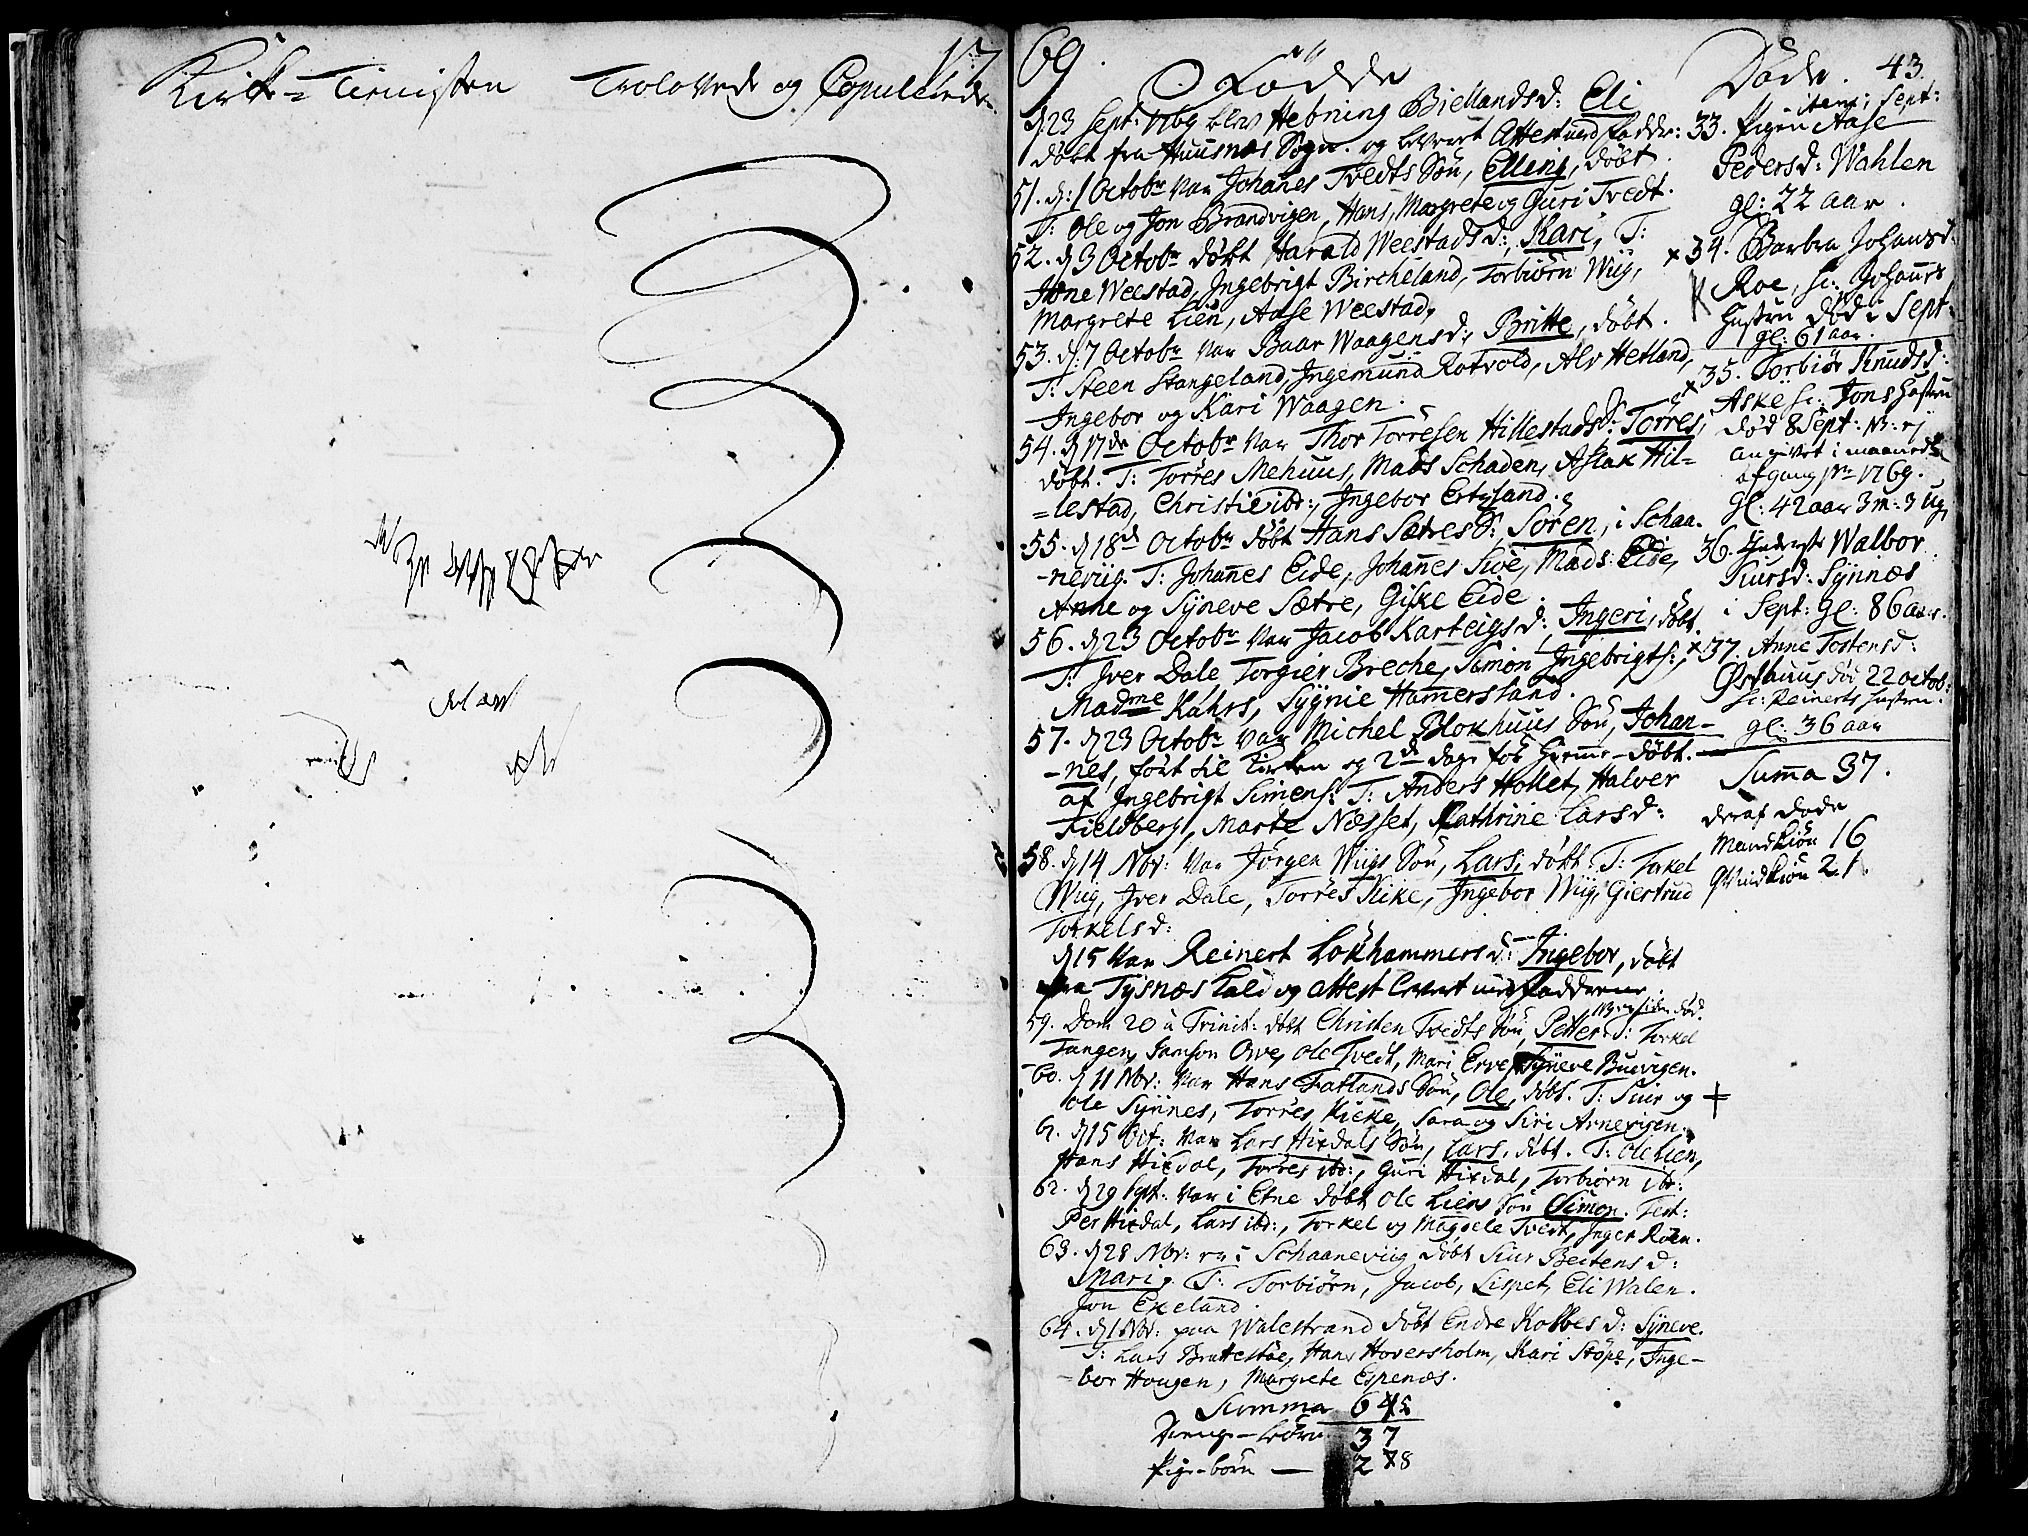 Kirke-Tienisten Trolovede og Copulerede
17
69. Födde
d 23 Sept: 1769 blev Hebning Biellandsd: Eli
döbt fra Huusnæs Sogn. og leveret Attest med Fadder:
51. d: 1 Octobr var Johanes Tvedts Sön, Elling, döbt.
T: Ole og Jon Brandvigen, Hans, Margrete og Guri Tvedt.
52. d 3 Octobr döbt Harald Weestads d:, Kari, T:
Jone Weestad, Ingebrigt Bircheland, Torbiörn Wiig,
Margrete Lien, Aase Weestad,
53. d: 7 Octobr var Baar Waagens d:, Britte, döbt.
T: Steen Stangeland, Ingemund Rotvold, Alv Hetland,
Ingebor og Kari Waagen.
54. d 17de Octobr var Thor Torresen Hillestads S: Torres,
döbt. T: Torres Mehuus, Mads Schaden, Aslak Hil=
=lestad, Christi ibr:, Ingebor Ertzland.
55. d 18d Octobr döbt Hans Sætres S: Sören, i Schaa-
-neviig. T: Johañes Eide, Johañes Sive, Mads Eide,
Anne og Syneve Sætre, Giske Eide.
56. d 23 Octobr var Jacob Karteigs d:, Ingeri, döbt
T: Iver Dale Torgier Breche, Simon Ingebrigts:,
Madme Kahrs, Sygnie Hamersland.
57. d 23 Octobr var Michel Blokhuus Sön, Johan-
-nes, fört til Kirken og 2de dage för Hieme-döbt.
af Ingebrigt Simens: T: Anders Hollet, Halver
Fieldberg, Marte Næsset, Kathrine Larsd:
58. d 14 Nbr: var Jörgen Wiigs Sön, Lars, döbt. T: Torkel
Wiig, Iver Dale, Torres Kike, Ingebor Wiig, Giertrud
Torkelsd:
d 15 var Reinert Lokhammersd: Ingebor, döbt
fra Tysnæs Kald og Attest leveret med Fadderne.
59. Dom 20 a Trinit: döbt Christen Tvedts Sön, Petter. T: Torkel
Tungen, Samson Ove, Ole Tvedt, Mari Erve, Syneve Buevigen.
60. d 11 Nbr: var Hans Fatlands Sön, Ole, döbt. T: Siur og +
Ole Synnes, Torres Kicke, Sara og Siri Arnevigen.
61. d 15 Oct: var Lars Hixdals Sön, Lars, döbt. T: Ole Lien,
Hans Hixdal, Torres ibr:, Guri Hixdal, Torbiörn ibr:
62. d 29 Sept: var i Etne döbt Ole Liens Sön Simon. Test:
Per Hixdal, Lars ibr:, Torkel og Magdele Tvedt, Inger Röen.
63. d 28 Nbr: i Schaaneviig döbt Siur Beitens d:
Mari. T: Torbiörn, Jacob, Lispet, Eli Walen.
Jon Exeland.
64. d 1 Nbr: paa Walestrand döbt Endre Kobbes d: Syneve.
T: Lars Brattestöe, Hans Hoversholm, Kari Stöpe, Inge-
-bor Haugen, Margrete Espenæs.
Summa 645
Drenge-börn 37
Pige-börn — 278
Döde. 43.
item i Sept:
33. Pigen Aase
Pedersd: Wahlen
gl: 22 aar.
x 34. Barbra Johansd:
Roe, sc: Johañes
Hustru död i Sept:
gl: 61 aar.
x 35. Torbiör Knudsd:
Aske sc: Jons Hustru
död 8 Sept: NB: ej
angivet i maaneds
afgang pro 1769.
gl: 42 aar 3 m: 3 ug,
36. Walbor
Siursd: Synnæs
i Sept: gl: 86 aar.
x 37. Anne Tostensd:
Östhuus död 22 octob:
sc: Reinerts Hustru.
gl: 36 aar
Summa 37.
deraf döde
Mandkiön 16
Qvindkiön 21.